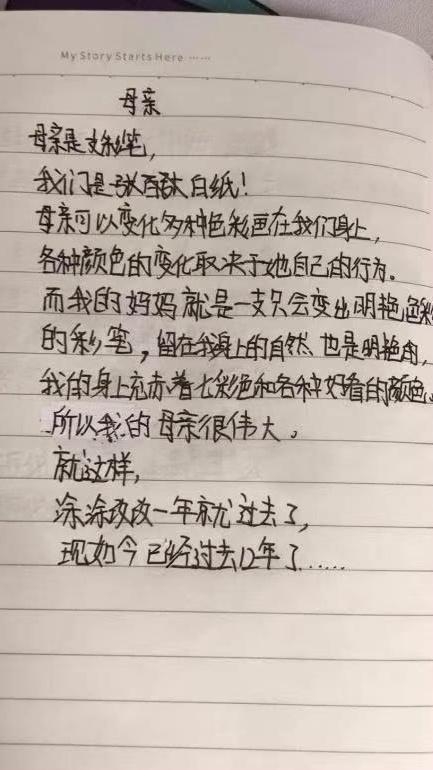 My Story Starts Here ······
母亲
母亲是支彩笔，
我们是张百张白纸！
母亲可以变化多种色彩画在我们身上，
各种颜色的变化取决于她自己的行为。
而我的妈妈就是一支只会变出明艳色彩
的彩笔，留在我身上的自然也是明艳的，
我的身上充赤着七彩色和各种好看的颜色。
所以我的母亲很伟大。
就这样，
涂涂改改一年就过去了，
现如今已经过去12年了.....